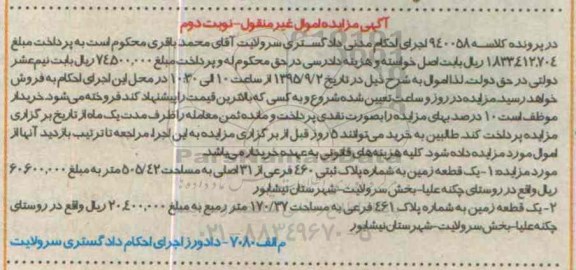 آگهی مزایده اموال غیر منقول-نوبت دوم
در پرونده کلاسه ۹۴۰۰۵۸ اجرای احکام مدنی دادگستری سرولایت آقای محمد باقری محکوم است به پرداخت مبلغ
۱.۸۳۳.۴۱۲.۷۰۴ ریال بابت اصل خواسته و هزینه دادرسی در حق محکوم له و پرداخت مبلغ ۷۴۵۰۰.۰۰۰ ریال بابت نیم عشر
دولتی در حق دولت. لذا اموال به شرح ذیل در تاریخ ۱۳۹۵/۹/۲ از ساعت ۱۰ الی ۱۰:۳۰ در محل این اجرای احکام به فروش
خواهد رسید. مزایده در روز و ساعت تعیین شده شروع و به کسی که بالاترین قیمت را پیشنهاد کند فروخته می شود. خریدار
موظف است ۱۰ درصد بهای مزایده را بصورت نقدی پرداخت و مانده ثمن معامله را ظرف مدت یک ماه از تاریخ برگزاری
مزایده پرداخت کند. طالبین به خرید می توانند ۵ روز قبل از برگزاری مزایده به این اجرا، مراجعه تا ترتیب بازدید آنها از
اموال مورد مزایده داده شود. کلیه هزینه های قانونی به عهده خریدار می باشد.
مورد مزایده ۱- یک قطعه زمین به شماره پلاک ثبتی ۴۶۰ فرعی از ۳۱ اصلی به مساحت ۵۰۵/۴۲ متر به مبلغ ۶۰.۶۰۰.۰۰۰
ریال واقع در روستای چکنه علیا-بخش سرولایت-شهرستان نیشابور
۲- یک قطعه زمین به شماره پلاک ۴۶۱ فرعی به مساحت ۱۷۰/۳۷ متر مربع به مبلغ ۲۰.۴۰۰.۰۰۰ ریال واقع در روستای
چکنه علیا-بخش سرولایت-شهرستان نیشابور
م الف ۷۰۸۰- دادورز اجرای احکام دادگستری سرولایت
۰۲۱-۸۸۳۴۹۶۷۰-۵